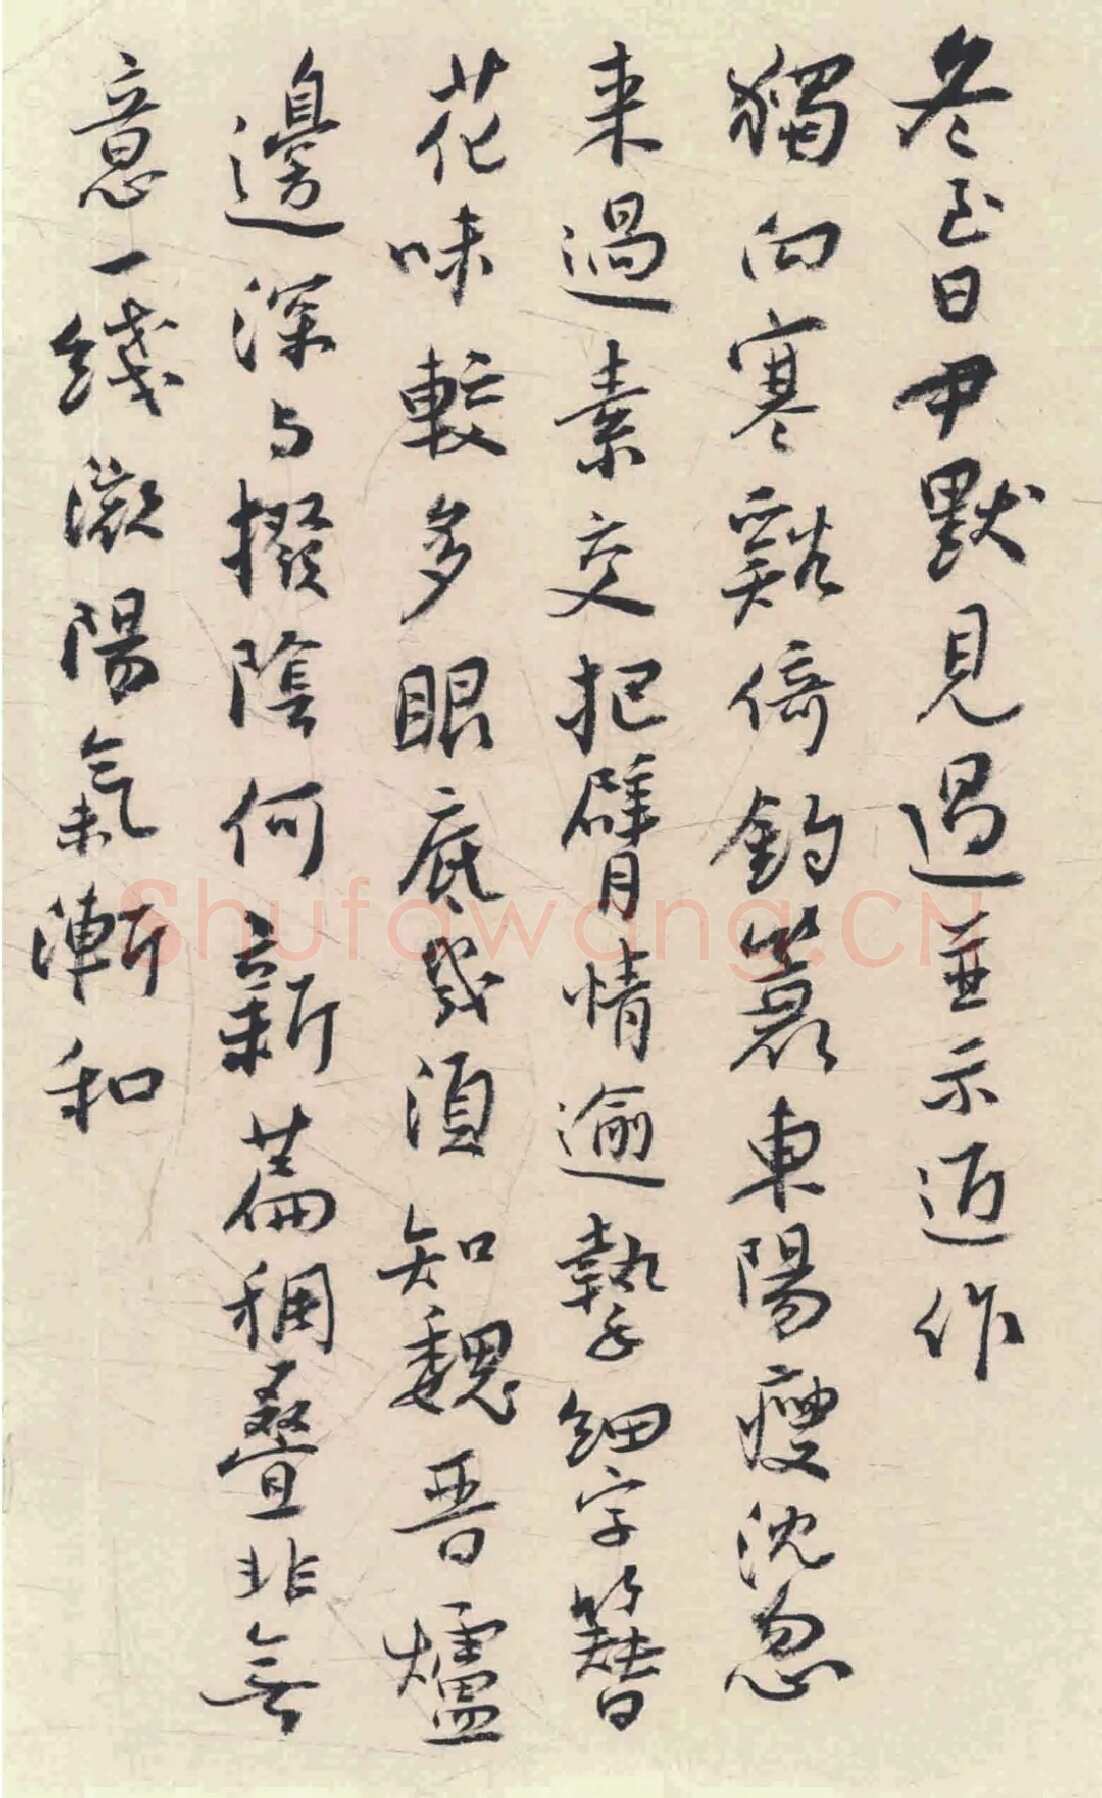 冬至日尹默見過並示近作
獨向寒谿倚釣蓑東陽瘦沈忽
来過素交把臂情逾摯細字簪
花味較多眼底幾須知魏晋爐
邊深与撥陰何新篇稠疊非無
意一綫微陽氣漸和
Shufawang.CN